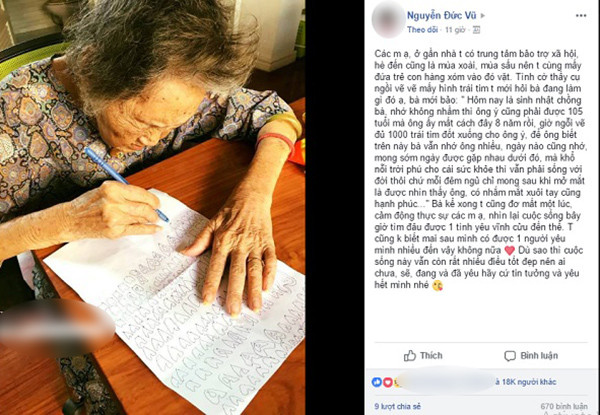 Nguyễn Đức Vũ
Theo dõi · 11 giờ ·
Các m ạ, ở gần nhà t có trung tâm bảo trợ xã hội,
hè đến cũng là mùa xoài, mùa sấu nên t cùng mấy
đứa trẻ con hàng xóm vào đó vặt. Tình cờ thấy cụ
ngồi vẽ vẽ mấy hình trái tim t mới hỏi bà đang làm
gì đó ạ, bà mới bảo: " Hôm nay là sinh nhật chồng
bà, nhớ không nhầm thì ông ý cũng phải được 105
tuổi mà ông ấy mất cách đây 8 năm rồi, giờ ngồi vẽ
đủ 1000 trái tim đốt xuống cho ông ý, để ông biết
trên này bà vẫn nhớ ông nhiều, ngày nào cũng nhớ,
mong sớm ngày được gặp nhau dưới đó, mà khổ
nỗi trời phú cho cái sức khỏe thì vẫn phải sống với
đời thôi chứ mỗi đêm ngủ chỉ mong sau khi mở mắt
là được nhìn thấy ông, có nhắm mắt xuôi tay cũng
hạnh phúc..." Bà kể xong t cũng đơ mất một lúc,
cảm động thực sự các m ạ, nhìn lại cuộc sống bây
giờ tìm đâu được 1 tình yêu vĩnh cửu đến thế. T
cũng k biết mai sau mình có được 1 người yêu
mình nhiều đến vậy không nữa ❤ Dù sao thì cuộc
sống này vẫn còn rất nhiều điều tốt đẹp nên ai
chưa, sẽ, đang và đã yêu hãy cứ tin tưởng và yêu
hết mình nhé 😘
Thích Bình luận
và 18K người khác
9 lượt chia sẻ 670 bình luận